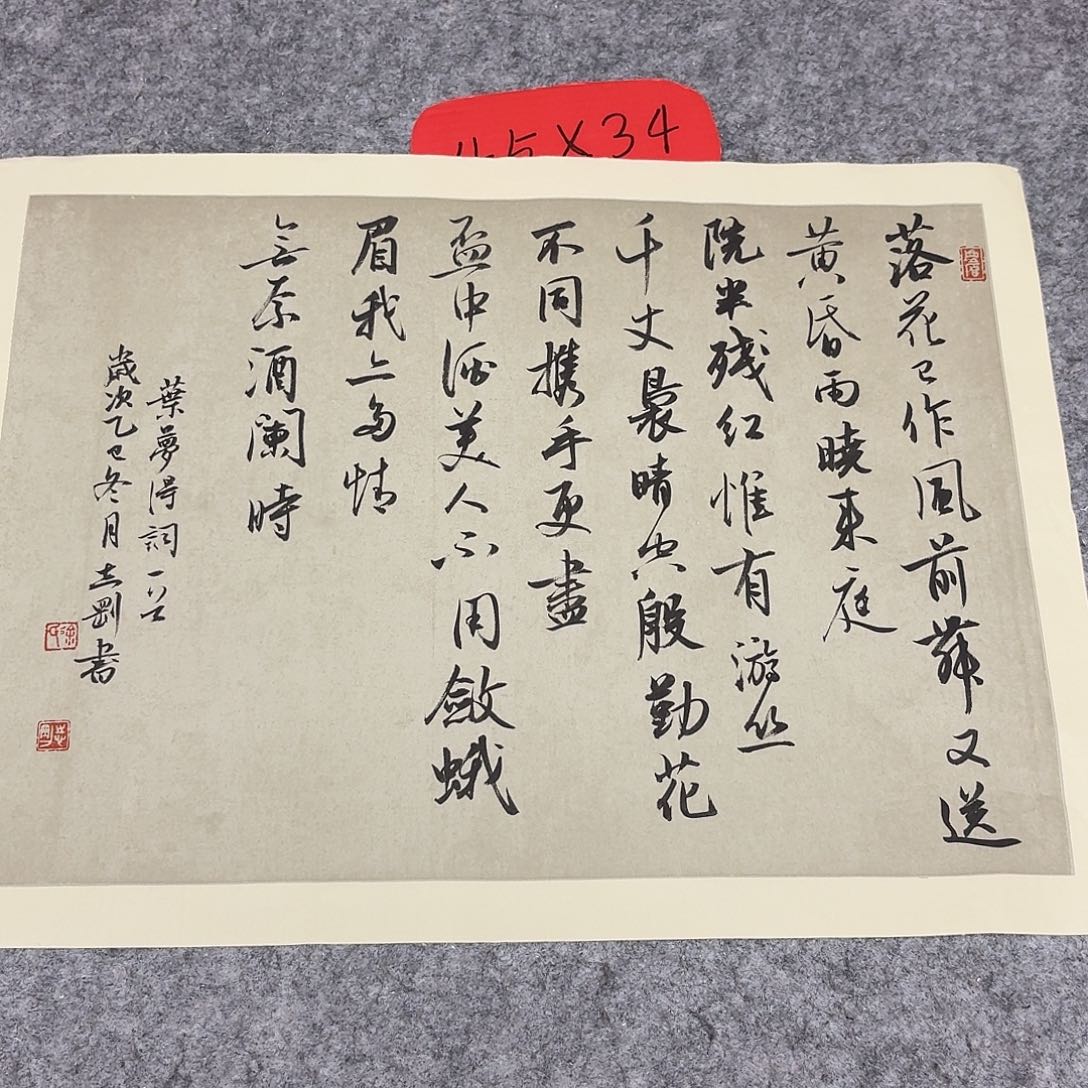 45×34
落花已作風前舞又送
黄昏雨曉来庭
院半残红惟有游丝
千丈裊晴空殷勤花
不同携手更盡
盃中酒美人不用斂蛾
眉我亦多情
無奈酒闌時
葉夢得詞一首
歲次乙巳冬月志剛書